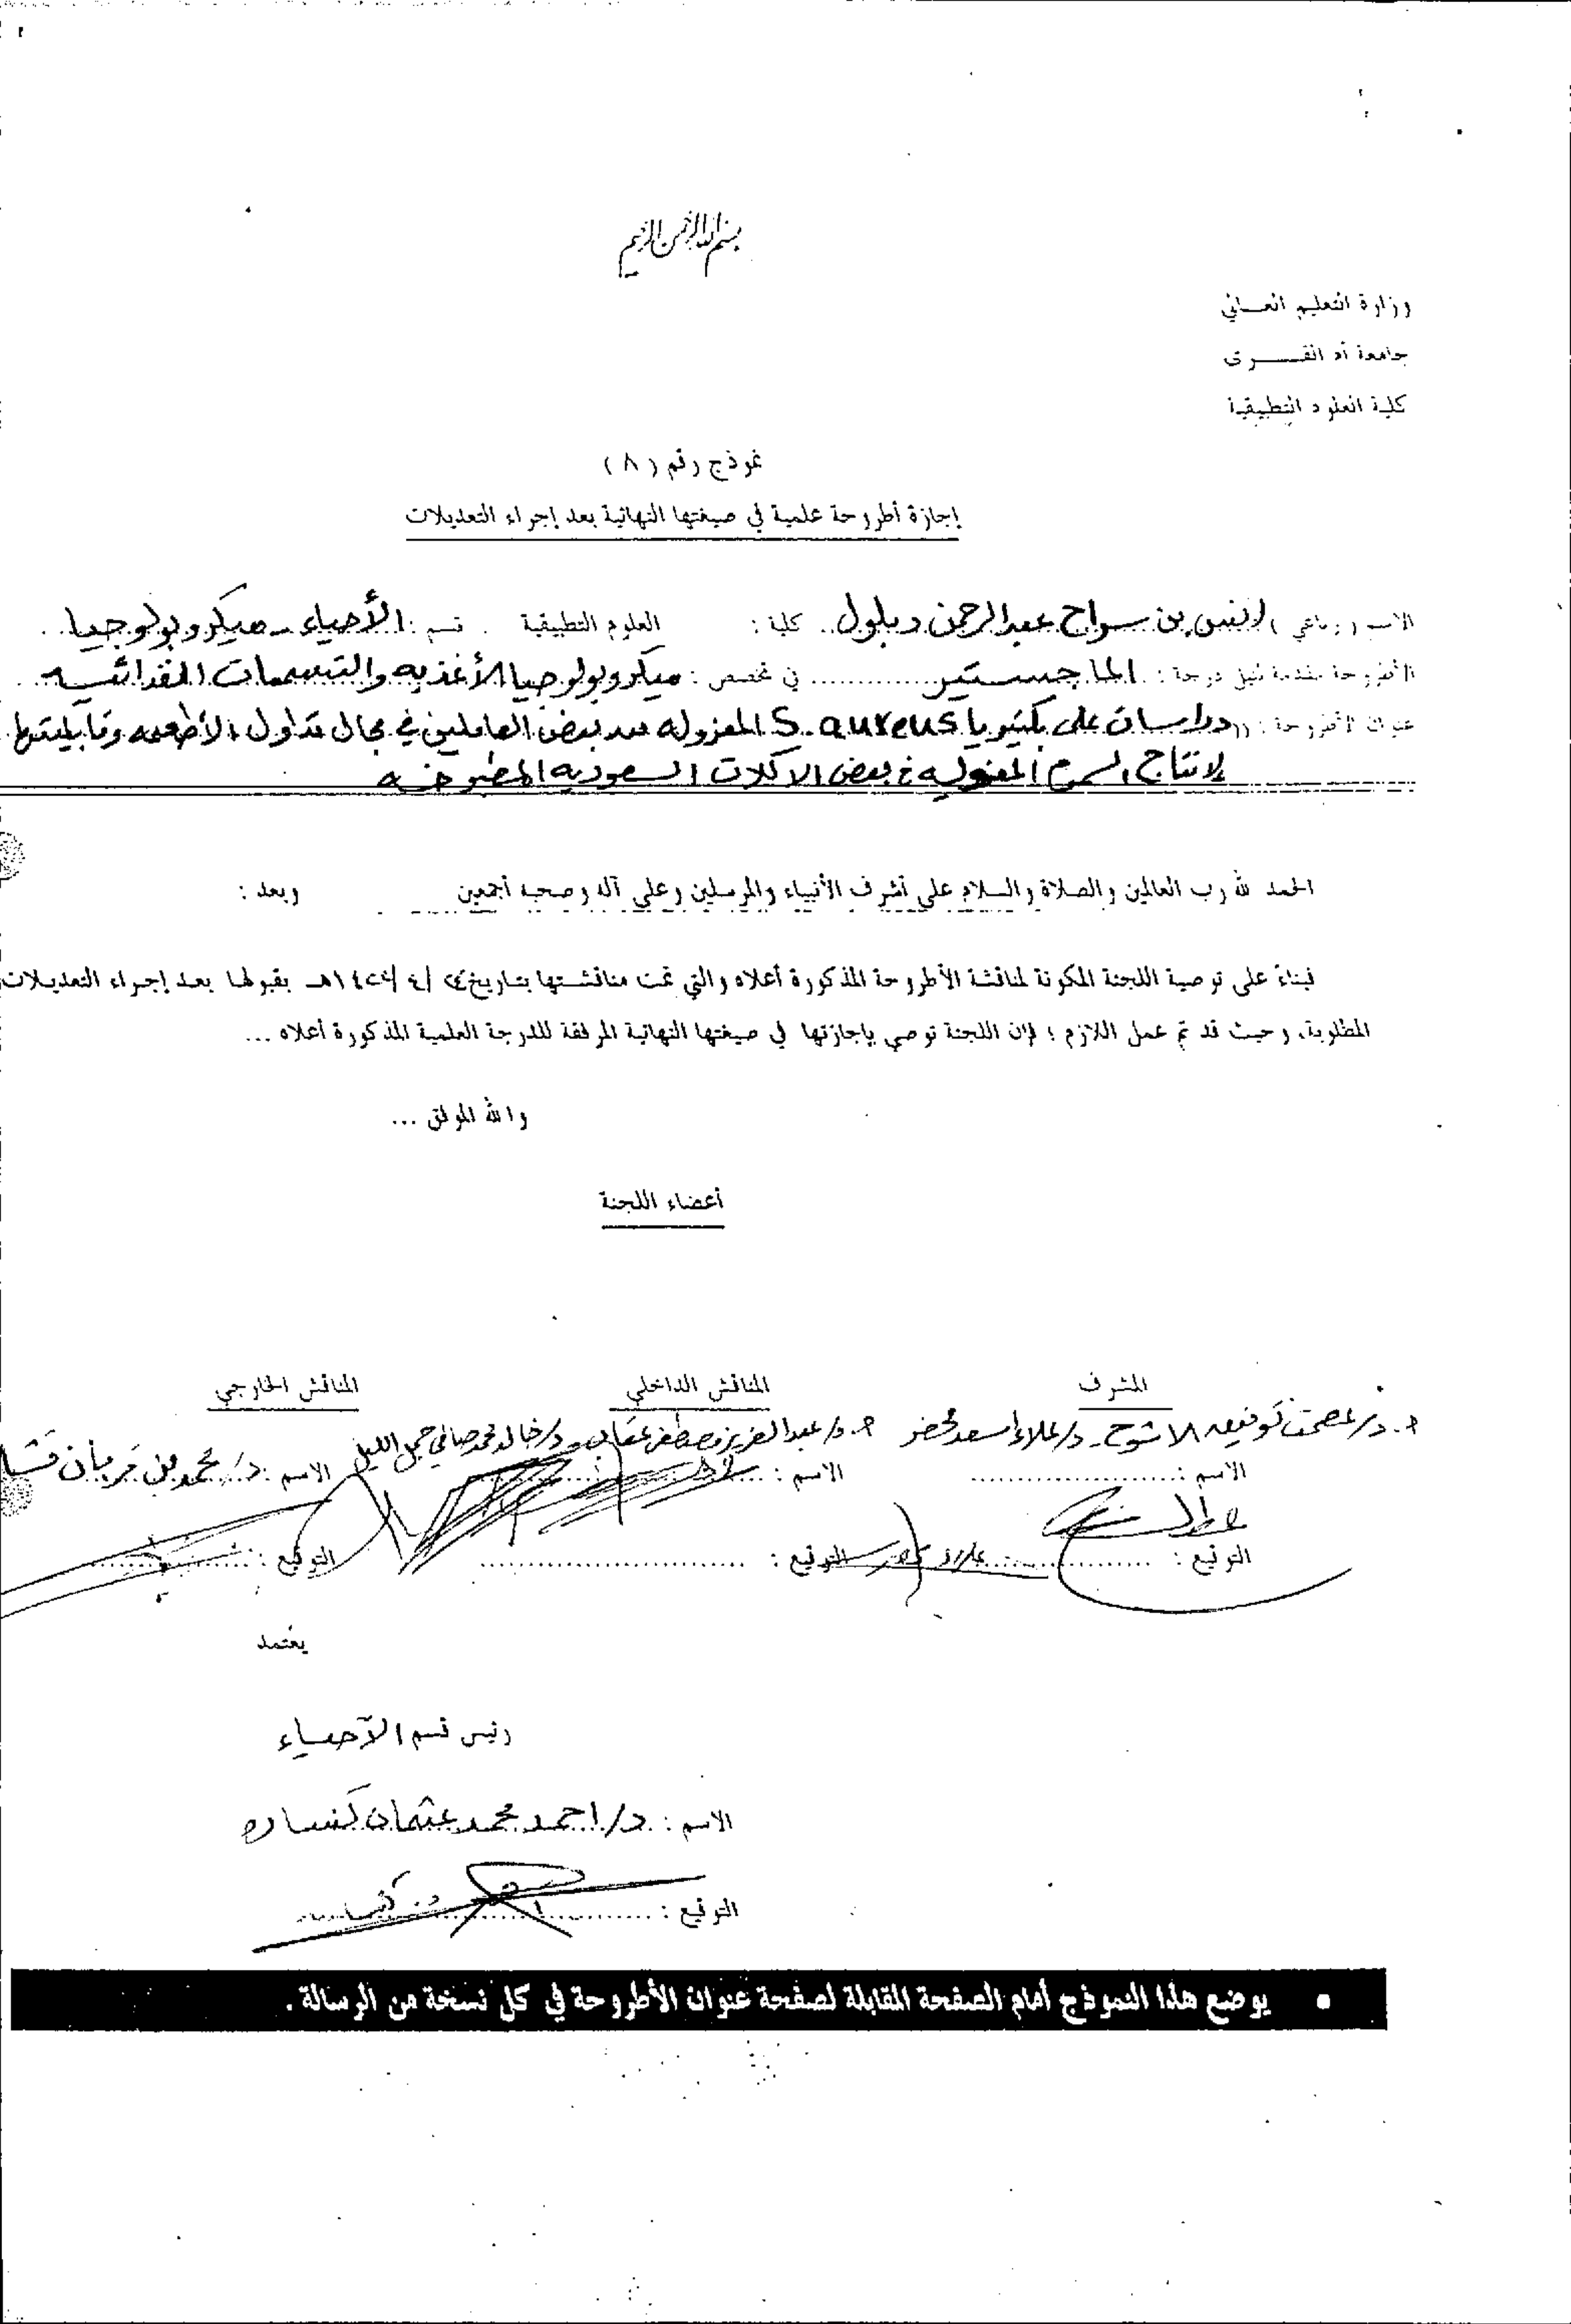 بسم الله الرحمن الرحيم
وزارة التعليم العـــالي
جامعة أم القـــــرى
كلية العلوم التطبيقية
نموذج رقم ( ٨ )
إجازة أطروحة علمية في صيغتها النهائية بعد إجراء التعديلات
الاسم ( رباعي ) انس بن سراج عبدالرحمن دبلول كلية : العلوم التطبيقية . قسم : الأحياء - ميكروبولوجيا
الأطروحة مقدمة لنيل درجة : الماجستير في تخصص : ميكروبولوجيا الأغذيه والتسممات الغذائيه
عنوان الأطروحة : (( دراسات على بكتيريا S. aureus المعزوله من بعض العاملين في مجال تداول الأطعمه وقابليتها
لإنتاج السموم المعويه في بعض الاكلات السعوديه المطبوخه
الحمد لله رب العالمين والصلاة والسلام على أشرف الأنبياء والمرسلين وعلى آله وصحبه أجمعين وبعد :
فبناءً على توصية اللجنة المكونة لمناقشة الأطروحة المذكورة أعلاه والتي تمت مناقشتها بتاريخ ٢٤ / ٤ / هـ بقبولها بعد إجراء التعديلات
المطلوبة، وحيث قد تم عمل اللازم ؛ فإن اللجنة توصي بإجازتها في صيغتها النهائية المرفقة للدرجة العلمية المذكورة أعلاه ...
والله الموفق ...
أعضاء اللجنة
المشرف المناقش الداخلي المناقش الخارجي
أ. د/ عصمت توفيق الاشوح - د/ علاء اسعد محضر أ. د/ عبدالعزيز مصطفى عقاب - د/ خالد محمد صافي جمل الليل
الاسم : الاسم : الاسم : د/ محمد قربان
التوقيع : التوقيع : التوقيع :
يعتمد
رئيس قسم الأحياء
الاسم : د/ احمد محمد عثمان كنساره
التوقيع :
• يوضع هذا النموذج أمام الصفحة المقابلة لصفحة عنوان الأطروحة في كل نسخة من الرسالة .